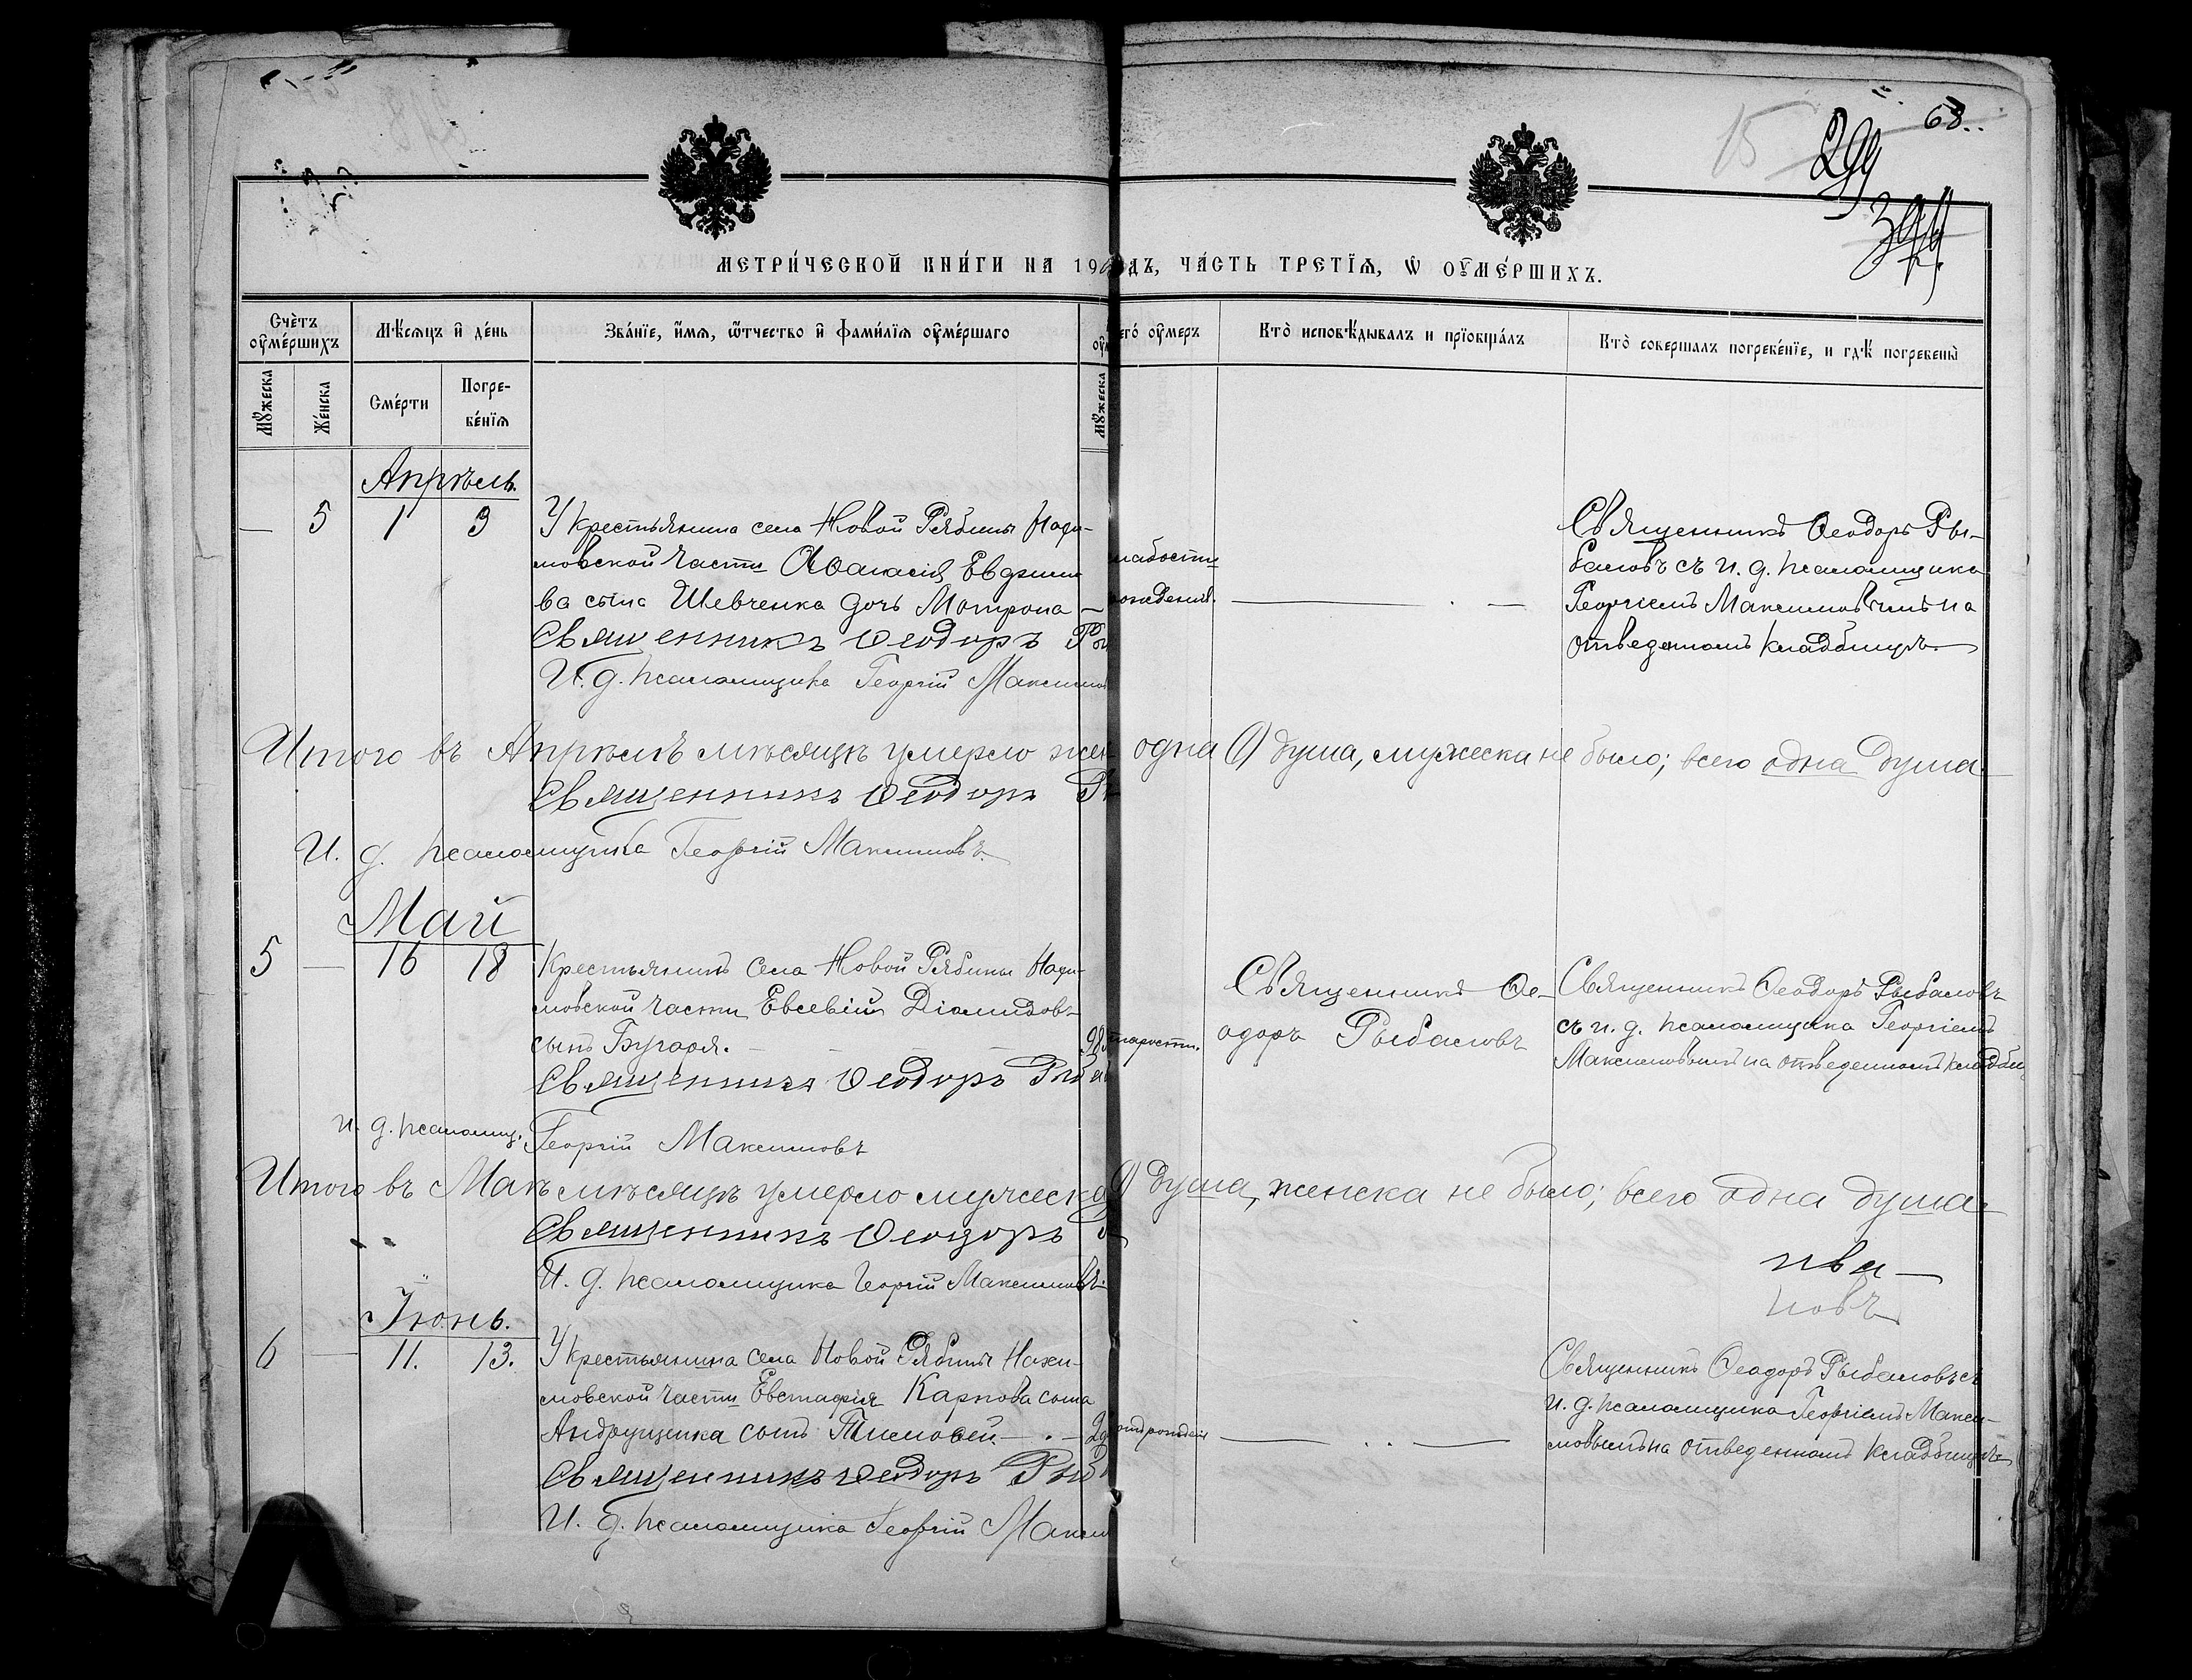 68.
15
299
МЕТРИ́ЧЕСКОЙ КНИ́ГИ НА 190 ДЪ, ЧА́СТЬ ТРЕ́ТЇѦ, Ѡ҆ ОУ҆МЕ́РШИХЪ.
Сче́тъ оу҆ме́ршихъ
Мѣ́сѧцъ и҆ де́нь
Зва́нїе, и҆́мѧ, ѻ҆́тчество и҆ фами́лїѧ оу҆ме́ршаго
его́ оу҆́меръ
Кто̀ исповѣ́дывалъ и прїобща́лъ
Кто̀ совершалъ погребе́нїе, и гдѣ́ погребены̀
Мꙋ́жеска
Же́нска
Сме́рти
Погре-
бе́нїѧ
Мꙋ́жеска
Апрѣль.
— 5 1 3
У крестьянина села Новой Рябины Нахи-
мовской части Аѳанасія Евфимі
ва сына Шевченка дочь Матрона —
Священникъ Ѳеодоръ Ры
И. д. псаломщика Георгій Максимов
слабости
рожденія.
Священникъ Ѳеодоръ Ры-
баловъ съ и. д. псаломщика
Георгіемъ Максимовымъ на
отведенномъ кладбищѣ.
Итого въ Апрѣлѣ мѣсяцѣ умерло жен одна (1) душа, мужеска не было; всего одна душа.
Священникъ Ѳеодоръ Ры
И. д. псаломщика Георгій Максимовъ.
Май
5 — 16 18
Крестьянинъ села Новой Рябины Нахи-
мовской части Евсевій Діомидовъ
сынъ Бугаря.
98 старости.
Священникъ Ѳеодоръ Рыба
Священникъ Ѳе-
одоръ Рыбаловъ
Священникъ Ѳеодоръ Рыбаловъ
съ и. д. псаломщика Георгіемъ
Максимовымъ на отведенномъ кладбищ
и. д. псаломщ. Георгій Максимовъ
Итого въ Маѣ мѣсяцѣ умерло мужеска (1) душа, женска не было; всего одна душа.
Священникъ Ѳеодоръ
И. д. псаломщика Георгій Максимовъ.
Іюнь.
6 — 11. 13.
У крестьянина села Новой Рябины Нахи-
мовской части Евстафія Карпова сына
Андрущенка сынъ Тимоѳей
Священникъ Ѳеодоръ Рыб
И. д. псаломщика Георгій Макси
отъ рожденія
Священникъ Ѳеодоръ Рыбаловъ съ
и. д. псаломщика Георгіемъ Макси-
мовымъ на отведенномъ кладбищѣ.